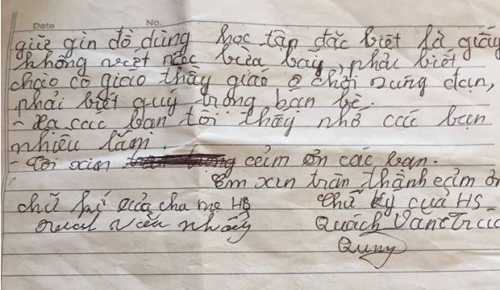 Date No.
giữ gìn đồ dùng học tập đặc biệt là giấy
không viết bừa bãy, phải biết
chào cô giáo thầy giáo chơi đan,
phải biết quý trọng bạn bè.
- Xa các bạn tôi thấy nhớ các bạn
nhiều lắm.
- Tôi xin cảm ơn các bạn.
Em xin trân thành cảm ơn
chữ kí của cha mẹ HS Chữ ký của HS
văn Quách Văn
Quny